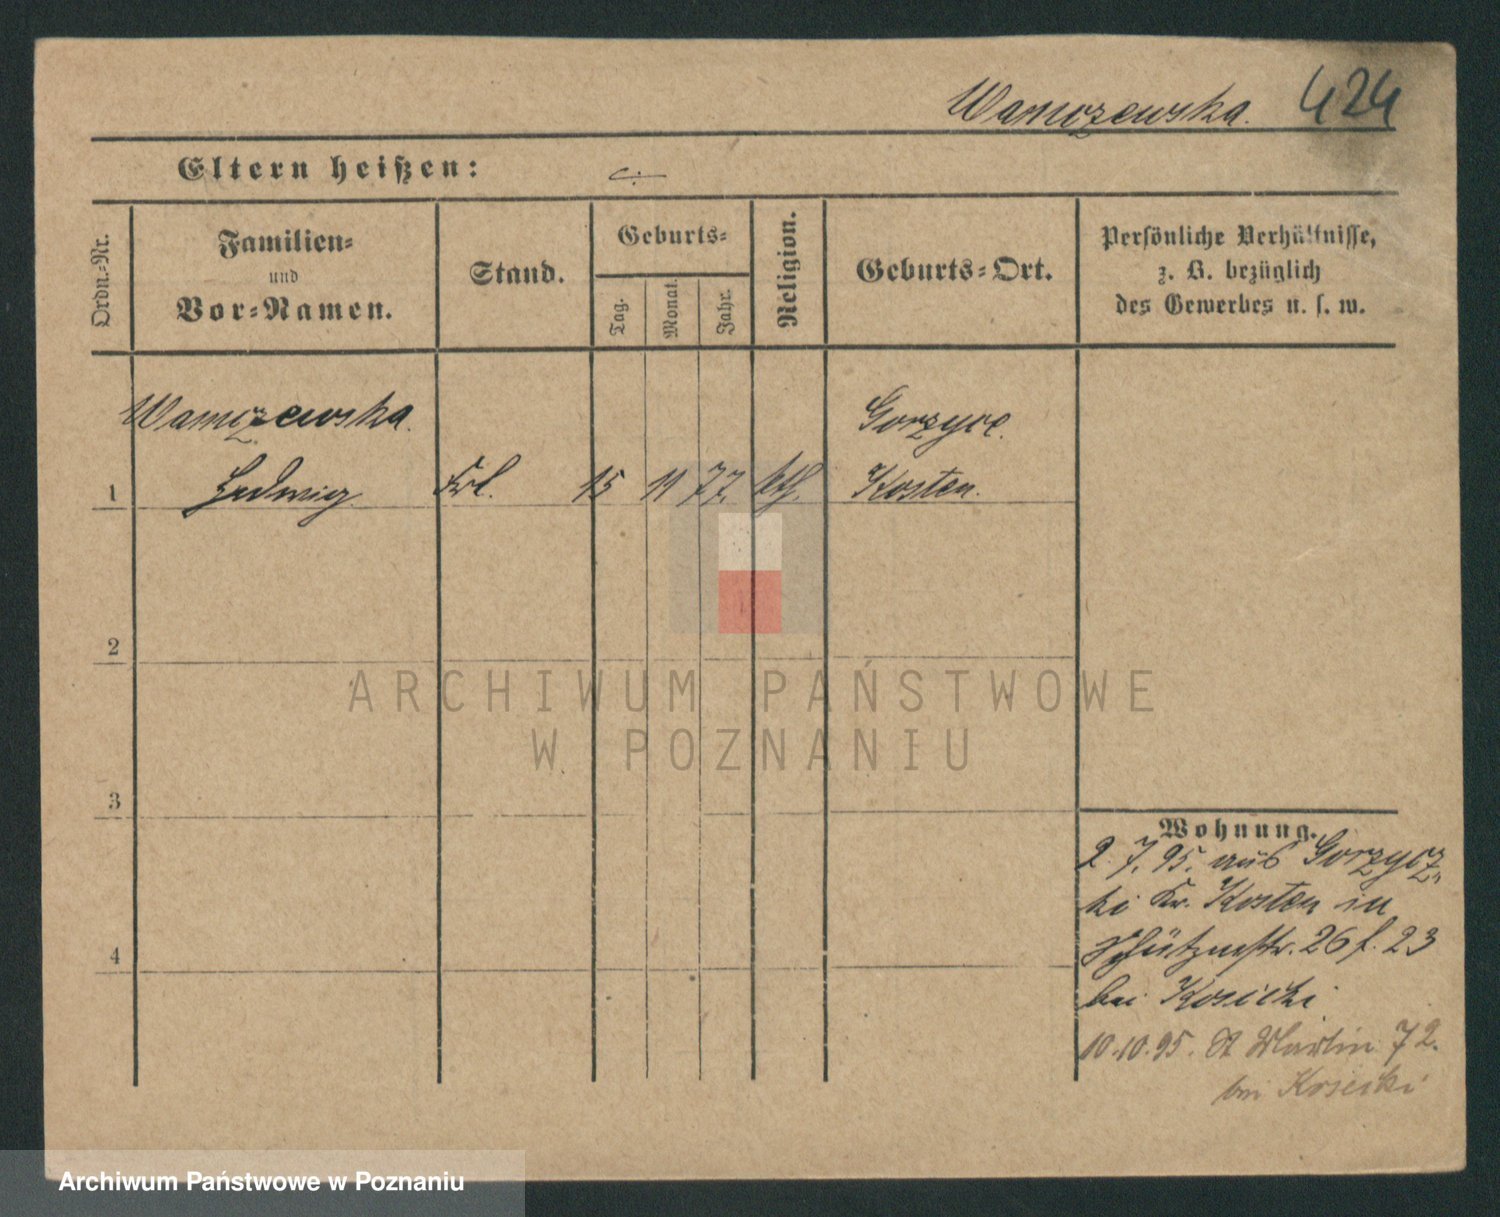 Wamczewska. 424
Eltern heißen: ./.
Ordn.-Nr.
Familien-
und
Vor-Namen.
Stand.
Geburts-
Tag.
Monat.
Jahr.
Religion.
Geburts-Ort.
Persönliche Verhältnisse,
z. B. bezüglich
des Gewerbes u. s. w.
Wamczewska.
Gorzyce.
1 Hedwig Frl. 15 11 77. kth. Kosten.
2
3
4
Wohnung.
2. 7. 95. aus Gorzycz-
ki Kr. Kosten in
Schützenstr. 26 f. 23
bei Kosicki
10.10.95. St Martin 72.
bei Kosicki
ARCHIWUM PAŃSTWOWE
W POZNANIU
Archiwum Państwowe w Poznaniu